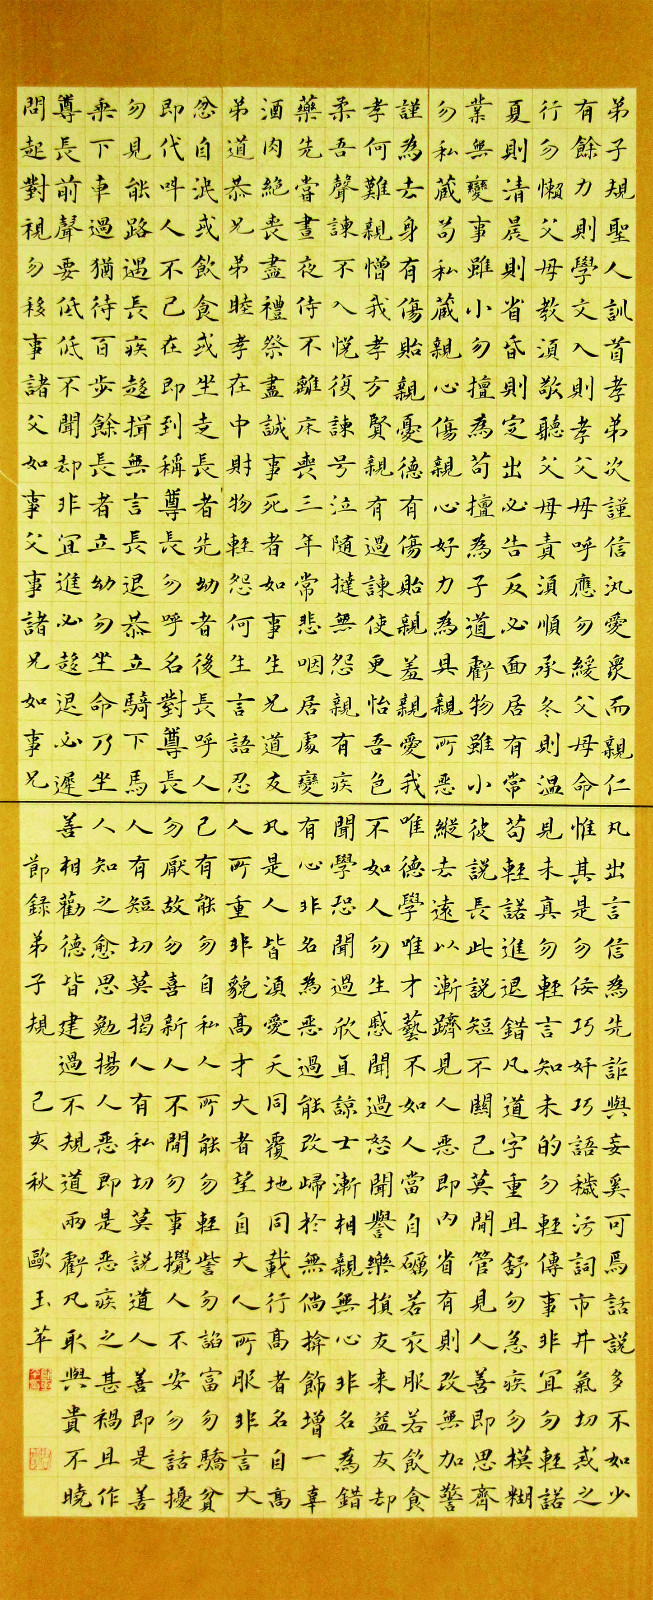 弟子規聖人訓首孝弟次謹信汎愛眾而親仁
有餘力則學文入則孝父母呼應勿緩父母命
行勿懶父母教須敬聽父母責須順承冬則溫
夏則清晨則省昏則定出必告反必面居有常
業無變事雖小勿擅為苟擅為子道虧物雖小
勿私藏苟私藏親心傷親心好力為具親所惡
謹為去身有傷貽親憂德有傷貽親羞親愛我
孝何難親憎我孝方賢親有過諫使更怡吾色
柔吾聲諫不入悅復諫号泣隨撻無怨親有疾
藥先嘗晝夜侍不離床喪三年常悲咽居處變
酒肉絕喪盡禮祭盡誠事死者如事生兄道友
弟道恭兄弟睦孝在中財物輕怨何生言語忍
忿自泯或飲食或坐走長者先幼者後長呼人
即代叫人不己在即到稱尊長勿呼名對尊長
勿見能路遇長疾趨揖無言長退恭立騎下馬
乘下車過猶待百步餘長者立幼勿坐命乃坐
尊長前聲要低低不聞却非宜進必趨退必遲
問起對視勿移事諸父如事父事諸兄如事兄
凡出言信為先詐與妄奚可焉話說多不如少
惟其是勿佞巧奸巧語穢污詞市井氣切戒之
見未真勿輕言知未的勿輕傳事非宜勿輕諾
苟輕諾進退錯凡道字重且舒勿急疾勿模糊
彼說長此說短不關己莫閒管見人善即思齊
縱去遠以漸躋見人惡即內省有則改無加警
唯德學唯才藝不如人當自礪若衣服若飲食
不如人勿生慼聞過怒聞譽樂損友來益友却
聞學恐聞過欣直諒士漸相親無心非名為錯
有心非名為惡過能改歸於無倘揜飾增一辜
凡是人皆須愛天同覆地同載行高者名自高
人所重非貌高才大者望自大人所服非言大
己有能勿自私人所能勿輕訾勿諂富勿驕貧
勿厭故勿喜新人不閒勿事攪人不安勿話擾
人有短切莫揭人有私切莫說道人善即是善
人知之愈思勉揚人惡即是惡疾之甚禍且作
善相勸德皆建過不規道兩虧凡取與貴不曉
節錄弟子規 己亥秋 歐玉萍